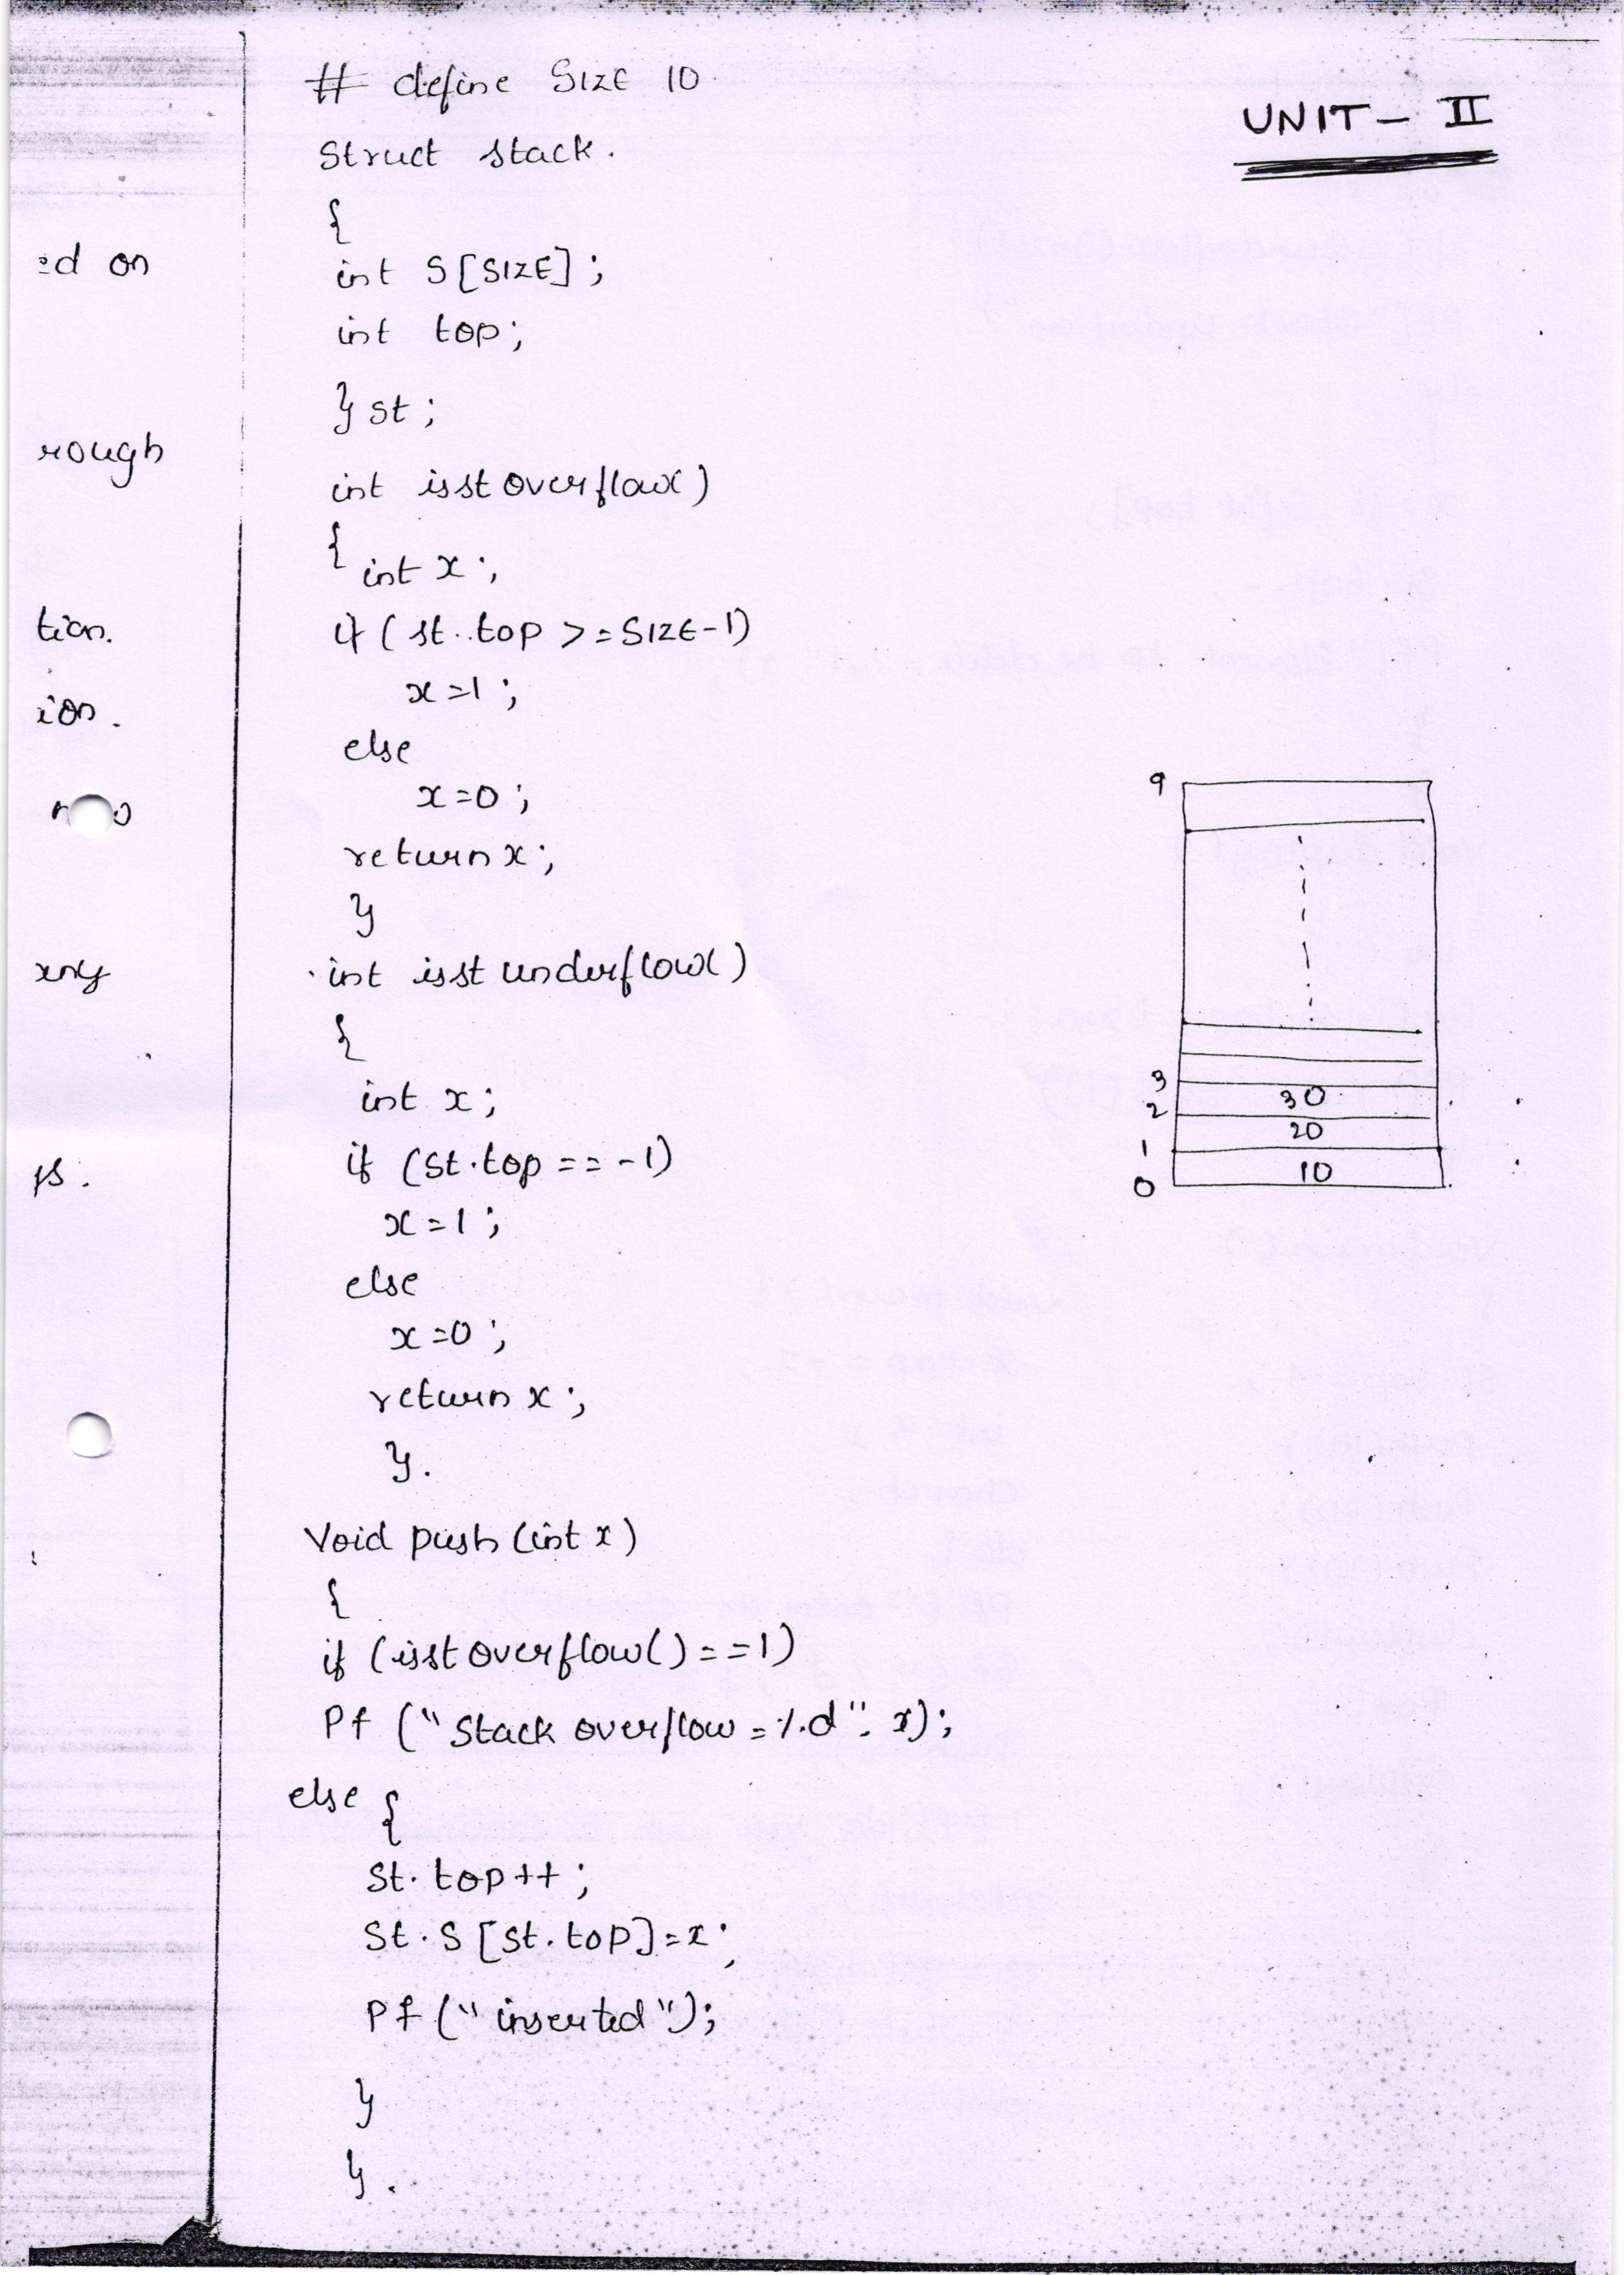 UNIT - II
# define SIZE 10
Struct stack.
{
int S[SIZE];
int top;
} st;
int isst overflow()
{ int x;
if (st..top >=SIZE-1)
x=1;
else
x=0;
return x;
}
int isst underflow()
{
int x;
if (St.top == -1)
x=1;
else
x=0;
return x;
}.
Void push (int x)
{
if (isst overflow()==1)
Pf ("Stack overflow =%d", x);
else {
St. top++;
St.S [St.top]=x;
Pf ("inserted");
}
}.
9
3
30
2
20
1
10
0
ed on
rough
tion.
ion.